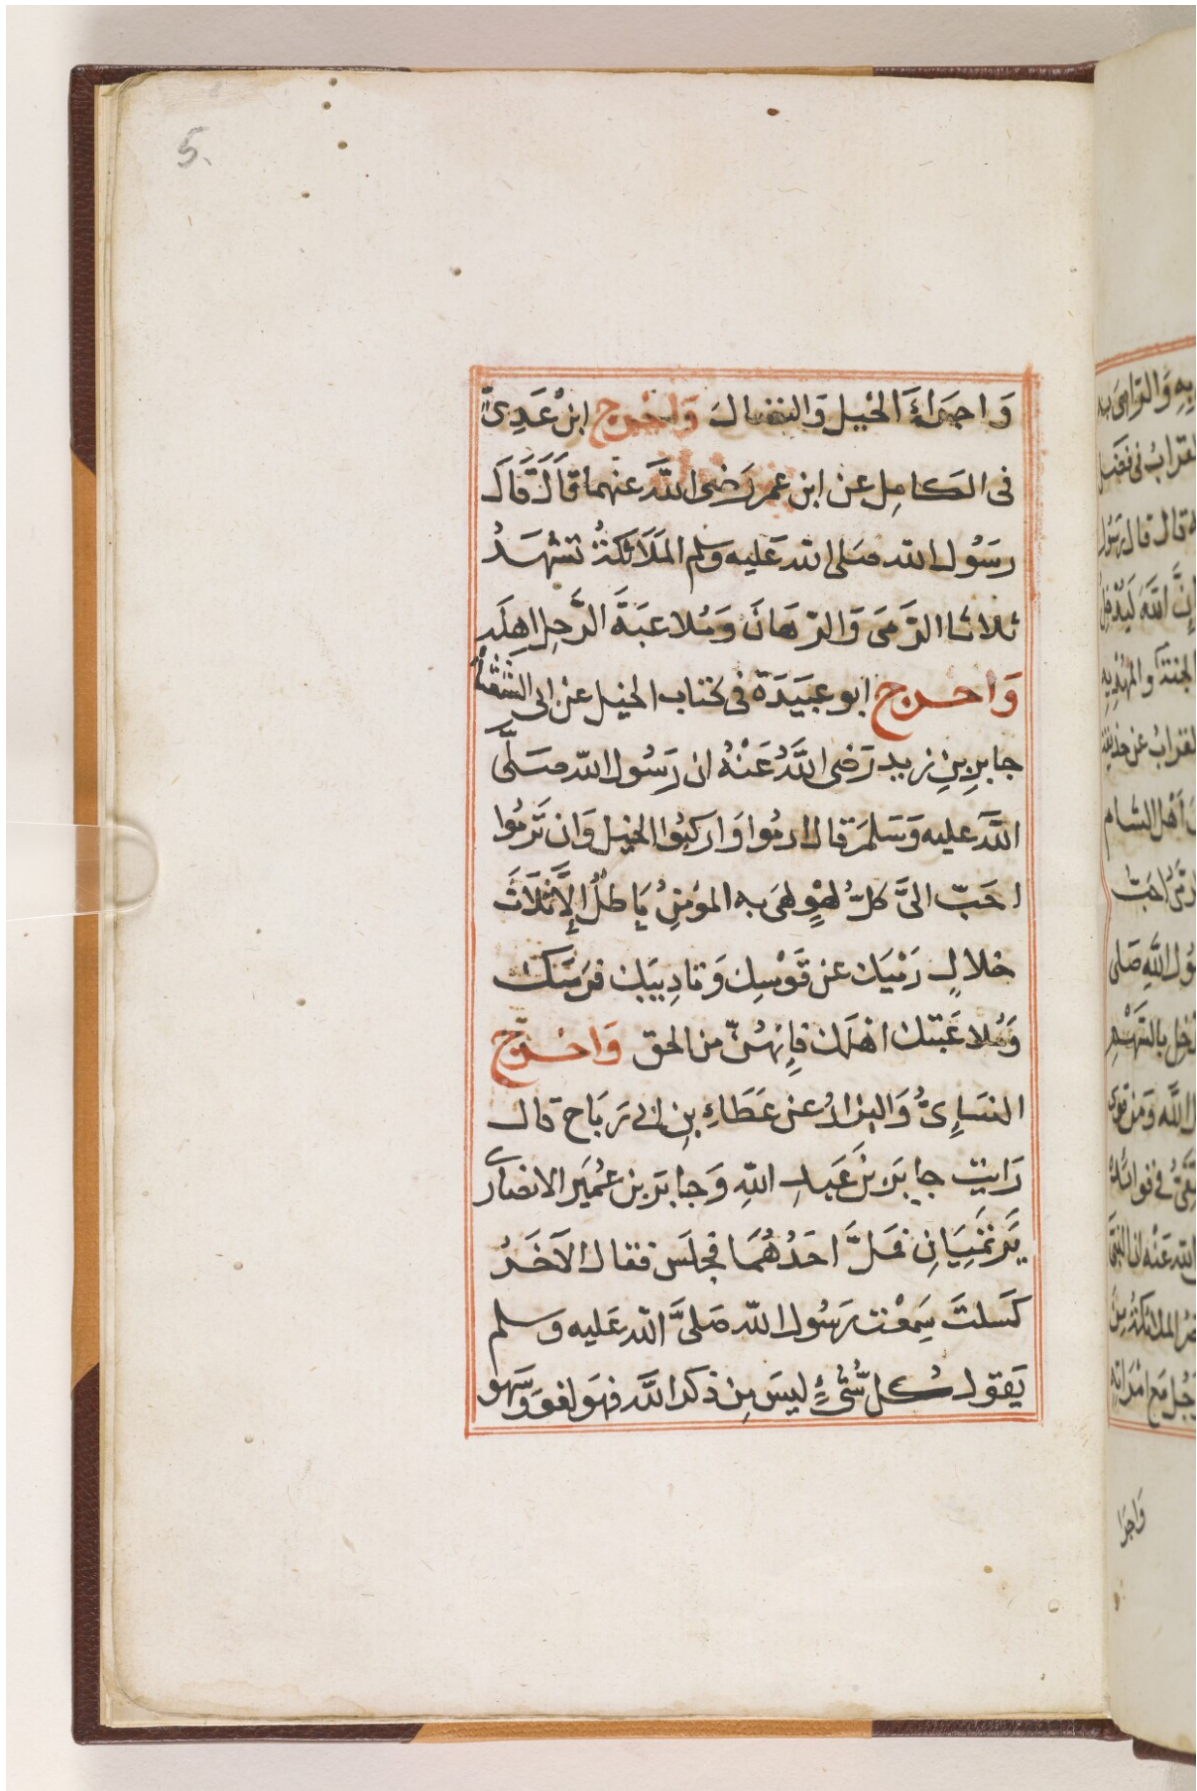 5.
وَاجراءَ الخيل وَالنضالَ وَاخرج ابنُ عَدِىّ
فى الكامِل عن ابن عمر رَضى اللّه عنهما قَالَ قَالَ
رسَوُل الله صَلى الله عَليه وَسلم المَلَائكةُ تشهَدُ
ثلاثا الرَّمىَ وَالرّهَانَ وَمُلاعبَةَ الرَّجل اهلَه
وَاخرج ابو عبَيَدَة فى كتاب الخيل عن ابى الشعْثَاءِ
جابرِ بنِ زيد رَضى اللَّهُ عَنْهُ ان رَسُول الله صَلَّى
اللَّه عليه وَسَلمَ قال ارمُوا وَاركبُوا الخيل وَان تَرمُوا
احَبّ الىَّ كلّ لهْوٍ لهىَ به المؤمنُ بَاطلٌ الَّا ثلَاثَ
خلالٍ رَمْيَك عن قَوْسِك وَتادِيبَك فرَسَك
وَمُلاعَبتَك اهْلَك فإنهُنّ من الحق وَاخرج
النسَاِىُّ وَالبزارُ عن عَطَاءِ بنِ ابى رَبَاح قال
رَايت جابرَ بنَ عَبدِ اللهِ وَجابرَ بن عُمَير الانصَارى
يَرتمَيَانِ فمَلَّ احَدُهُمَا فجلَس فقال الآخَرُ
كَسَلتَ سَمِعْت رَسُول الله صَلىَّ الله عَليه وَسلم
يَقول كُل شَّىْءٍ ليسَ مِن ذكر اللَّه فهوَ لغو وَسَهو
وَاجرا